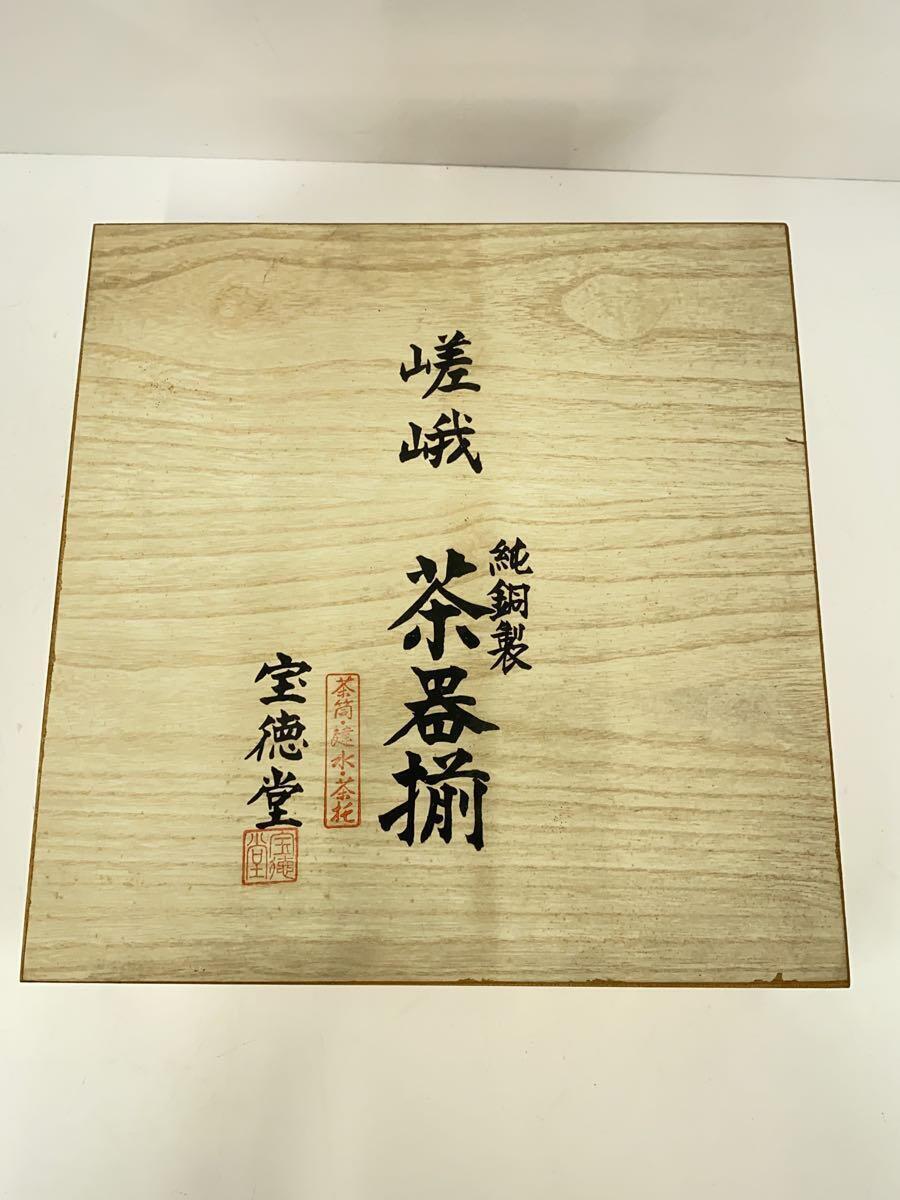 嵯峨
純銅製
茶器揃
茶筒・建水・茶托
宝徳堂
宝徳堂